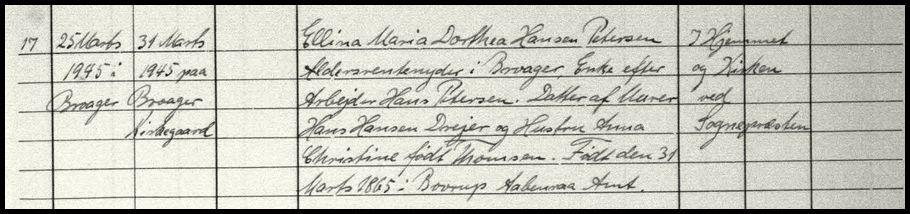 17 25 Marts 31 Marts Ellina Maria Dorthea Hansen Petersen I Hjemmet
1945 i 1945 paa Aldersrentenyder i Broager Enke efter og Kirken
Broager Broager Arbejder Hans Petersen. Datter af Murer ved
Kirkegaard Hans Hansen Drejer og Hustru Anna Sognepræsten
Christine født Thomsen. Født den 31
Marts 1865 i Bovrup Aabenraa Amt.